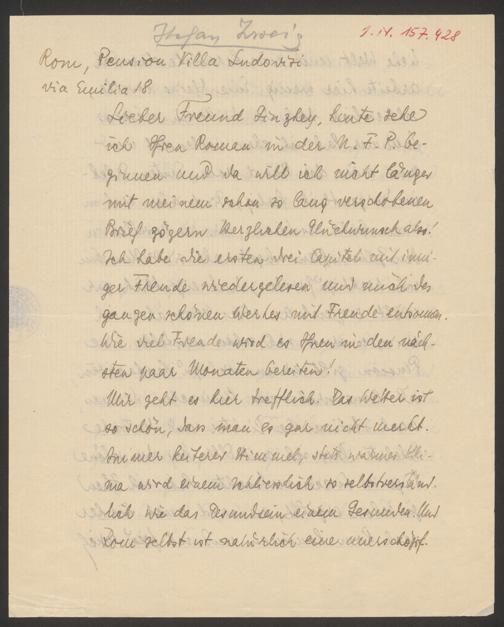 Stefan Zweig
J.N. 157.428
Rom, Pension Villa Ludovisi
via Emilia 18
Lieber Freund Ginzkey, heute sehe
ich Ihren Roman in der N. F. P. be-
ginnen und da will ich nicht länger
mit meinem schon so lang verschobenen
Brief zögern. Herzlichen Glückwunsch also!
Ich habe die ersten drei Capitel mit inni-
ger Freude wiedergelesen und mich des
ganzen schönen Werkes mit Freude entsonnen.
Wie viel Freude wird es Ihnen in den näch-
sten paar Monaten bereiten!
Mir geht es hier trefflich. Das Wetter ist
so schön, dass man es gar nicht merkt.
Immer heiterer Himmel, stets warmes Kli-
ma wird einem schliesslich so selbstverständ-
lich wie das Gesundsein einem Gesunden. Und
Rom selbst ist natürlich eine unerschöpf-